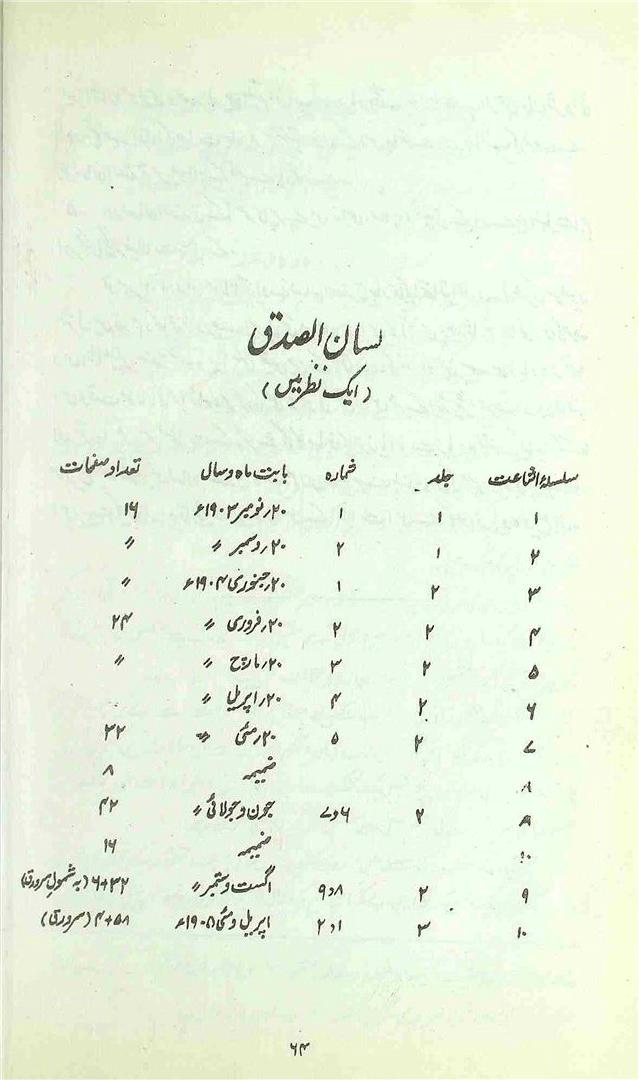 لسان الصدق
(ایک نظر میں)
سلسلۂ اشاعت جلد شمارہ بابت ماہ و سال تعداد صفحات
۱ ۱ ۱ ۲۰؍نومبر ۱۹۰۳ء ۱۶
۲ ۱ ۲ ۲۰؍دسمبر 〃 〃
۳ ۲ ۱ ۲۰؍جنوری ۱۹۰۴ء 〃
۴ ۲ ۲ ۲۰؍فروری 〃 ۲۴
۵ ۲ ۳ ۲۰؍مارچ 〃 〃
۶ ۲ ۴ ۲۰؍اپریل 〃
۷ ۲ ۵ ۲۰؍مئی 〃 ۳۲
ضمیمہ ۸
۸ ۲ ۶و۷ جون و جولائی 〃 ۴۲
ضمیمہ ۱۶
۹ ۲ ۸و۹ اگست و ستمبر 〃 ۳۲+۶ (بہ شمول سرورق)
۱۰ ۳ ۱و۲ اپریل و مئی ۱۹۰۵ء ۵۸+۴ (سرورق)
۶۴